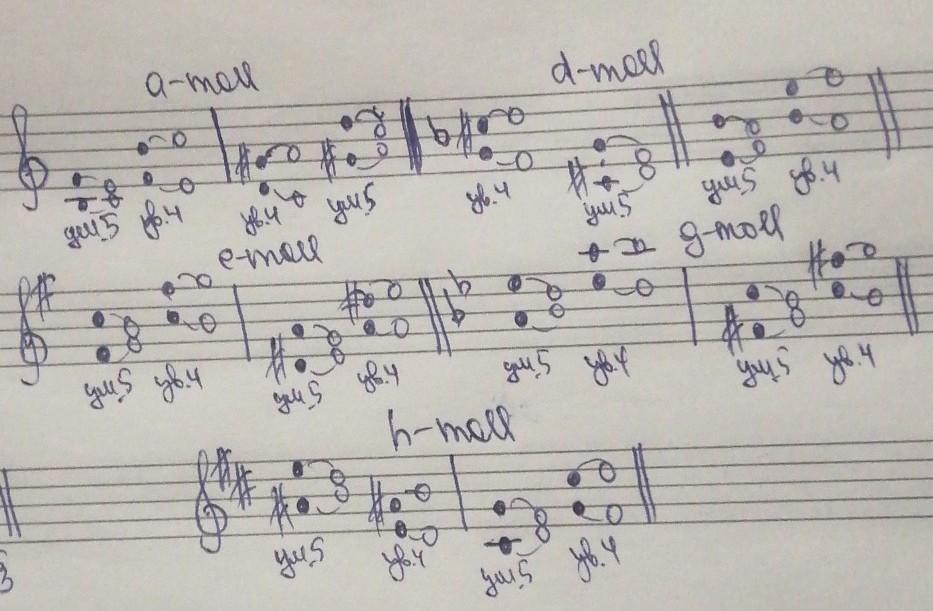 a-moll d-moll
ум.5 ув.4 ув.4 ум.5 ув.4 ум.5 ум.5 ув.4
e-moll g-moll
ум.5 ув.4 ум.5 ув.4 ум.5 ув.4 ум.5 ув.4
h-moll
3 ум.5 ув.4 ум.5 ув.4